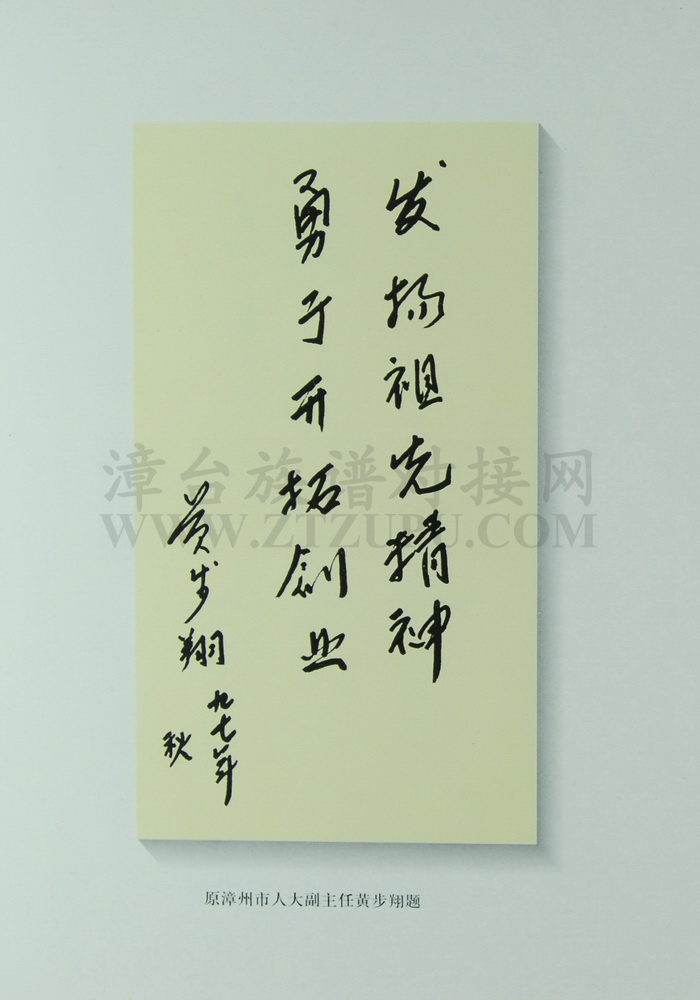 发扬祖先精神
勇于开拓创业
黄步翔
九七年
秋
漳台族谱对接网
WWW.ZTZUPU.COM
原漳州市人大副主任黄步翔题